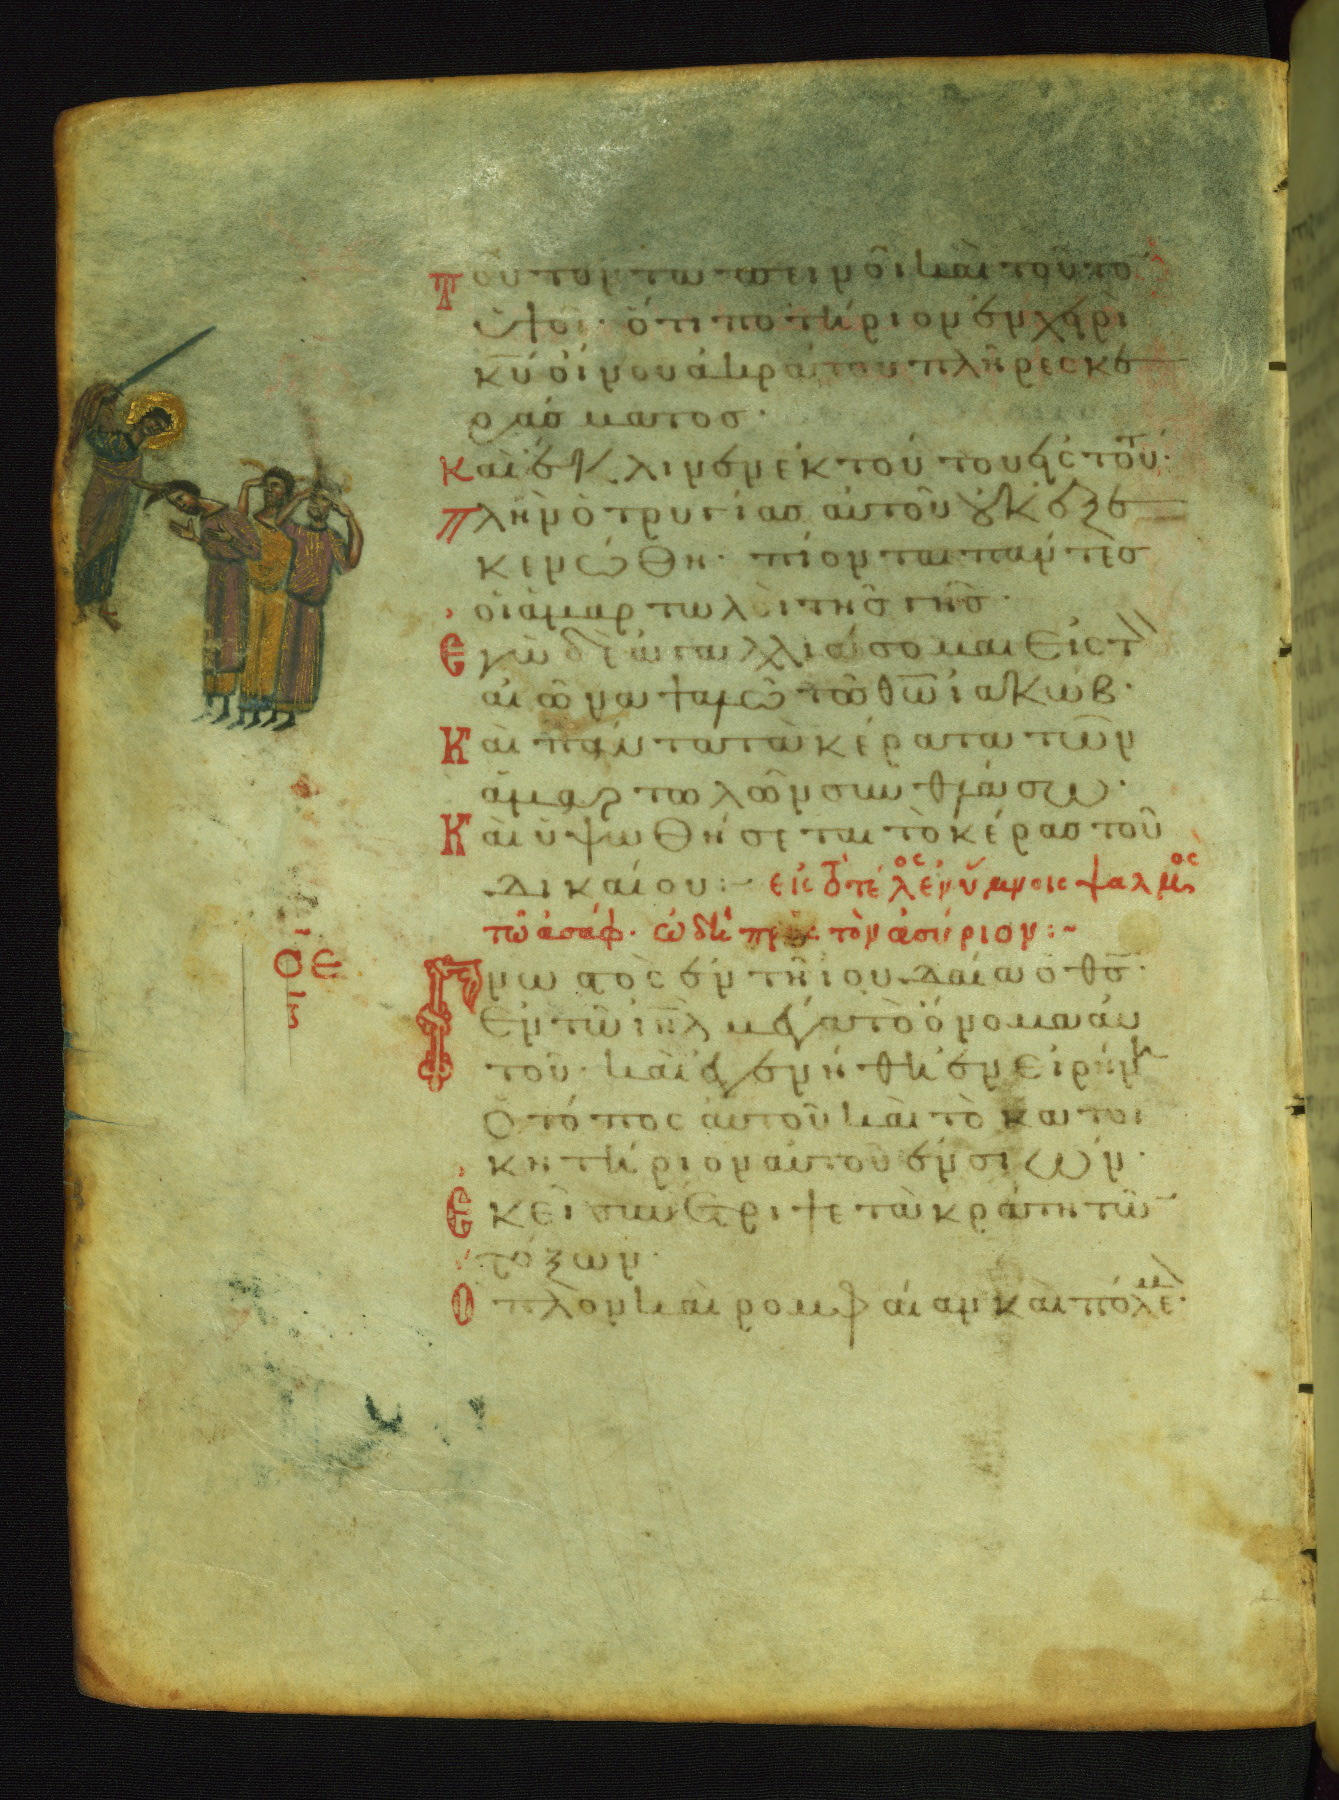 Τοῦτον ταπεινοῖ καὶ τοῦτον
ὑψοῖ· ὅτι ποτήριον ἐν χειρὶ
κῡ οἴνου ἀκράτου πλῆρες κε
ράσματος·
Καὶ ἔκλινεν ἐκ τούτου εἰς τοῦτο·
Πλὴν ὁ τρυγίας αὐτοῦ οὐκ ἐξε
κενώθη· πίονται πάντες
οἱ ἁμαρτωλοὶ τῆς γῆς·
Ἐγὼ δὲ ἀγαλλιάσομαι εἰς τὸν
αἰῶνα ψαλῶ τῶ θω̄ ἰακώβ·
Καὶ πάντα τὰ κέρατα τῶν
ἁμαρτωλῶν συνθλάσω·
Καὶ ὑψωθήσεται τὸ κέρας τοῦ
δικαίου:– εἰς τὸ τέλος ἐν ὕμνοις ψαλμὸς
τῶ ἀσάφ· ὠδὴ πρὸς τὸν ἀσύριον:~
ΟΕ
Γνωστὸς ἐν τῆ ἰουδαία ὁ θς̄·
Ἐν τῶ ιηλ̄ μέγα τὸ ὄνομα αὐ
τοῦ· καὶ ἐγενήθη ἐν εἰρήνη
Ὁ τόπος αὐτοῦ καὶ τὸ κατοι
κητήριον αὐτοῦ ἐν σιών·
Ἐκεῖ συνέτριψε τὰ κράτη τῶν
τόξων·
Ὅπλον καὶ ρομφαίαν καὶ πόλεμ·